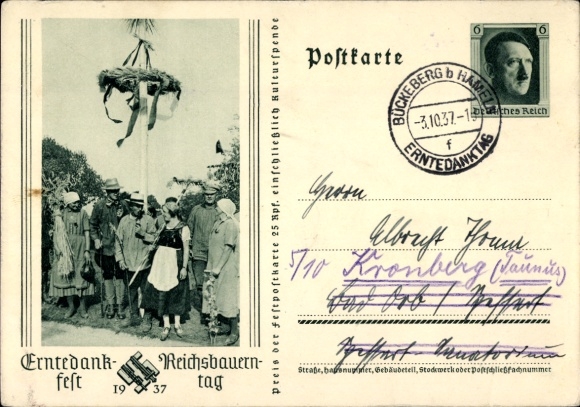 Postkarte
6 6
Deutsches Reich
BÜCKEBERG b HAMELN
-3.10.37.-1
f
ERNTEDANKTAG
Preis der Festpostkarte 25 Rpf. einschließlich Kulturspende
Herrn
Albrecht
5/10 Kronberg (Taunus)
Bad Orb / Spessart
Spessart-Sanatorium
Straße, Hausnummer, Gebäudeteil, Stockwerk oder Postschließfachnummer
Erntedank-
fest
Reichsbauern-
tag
1937